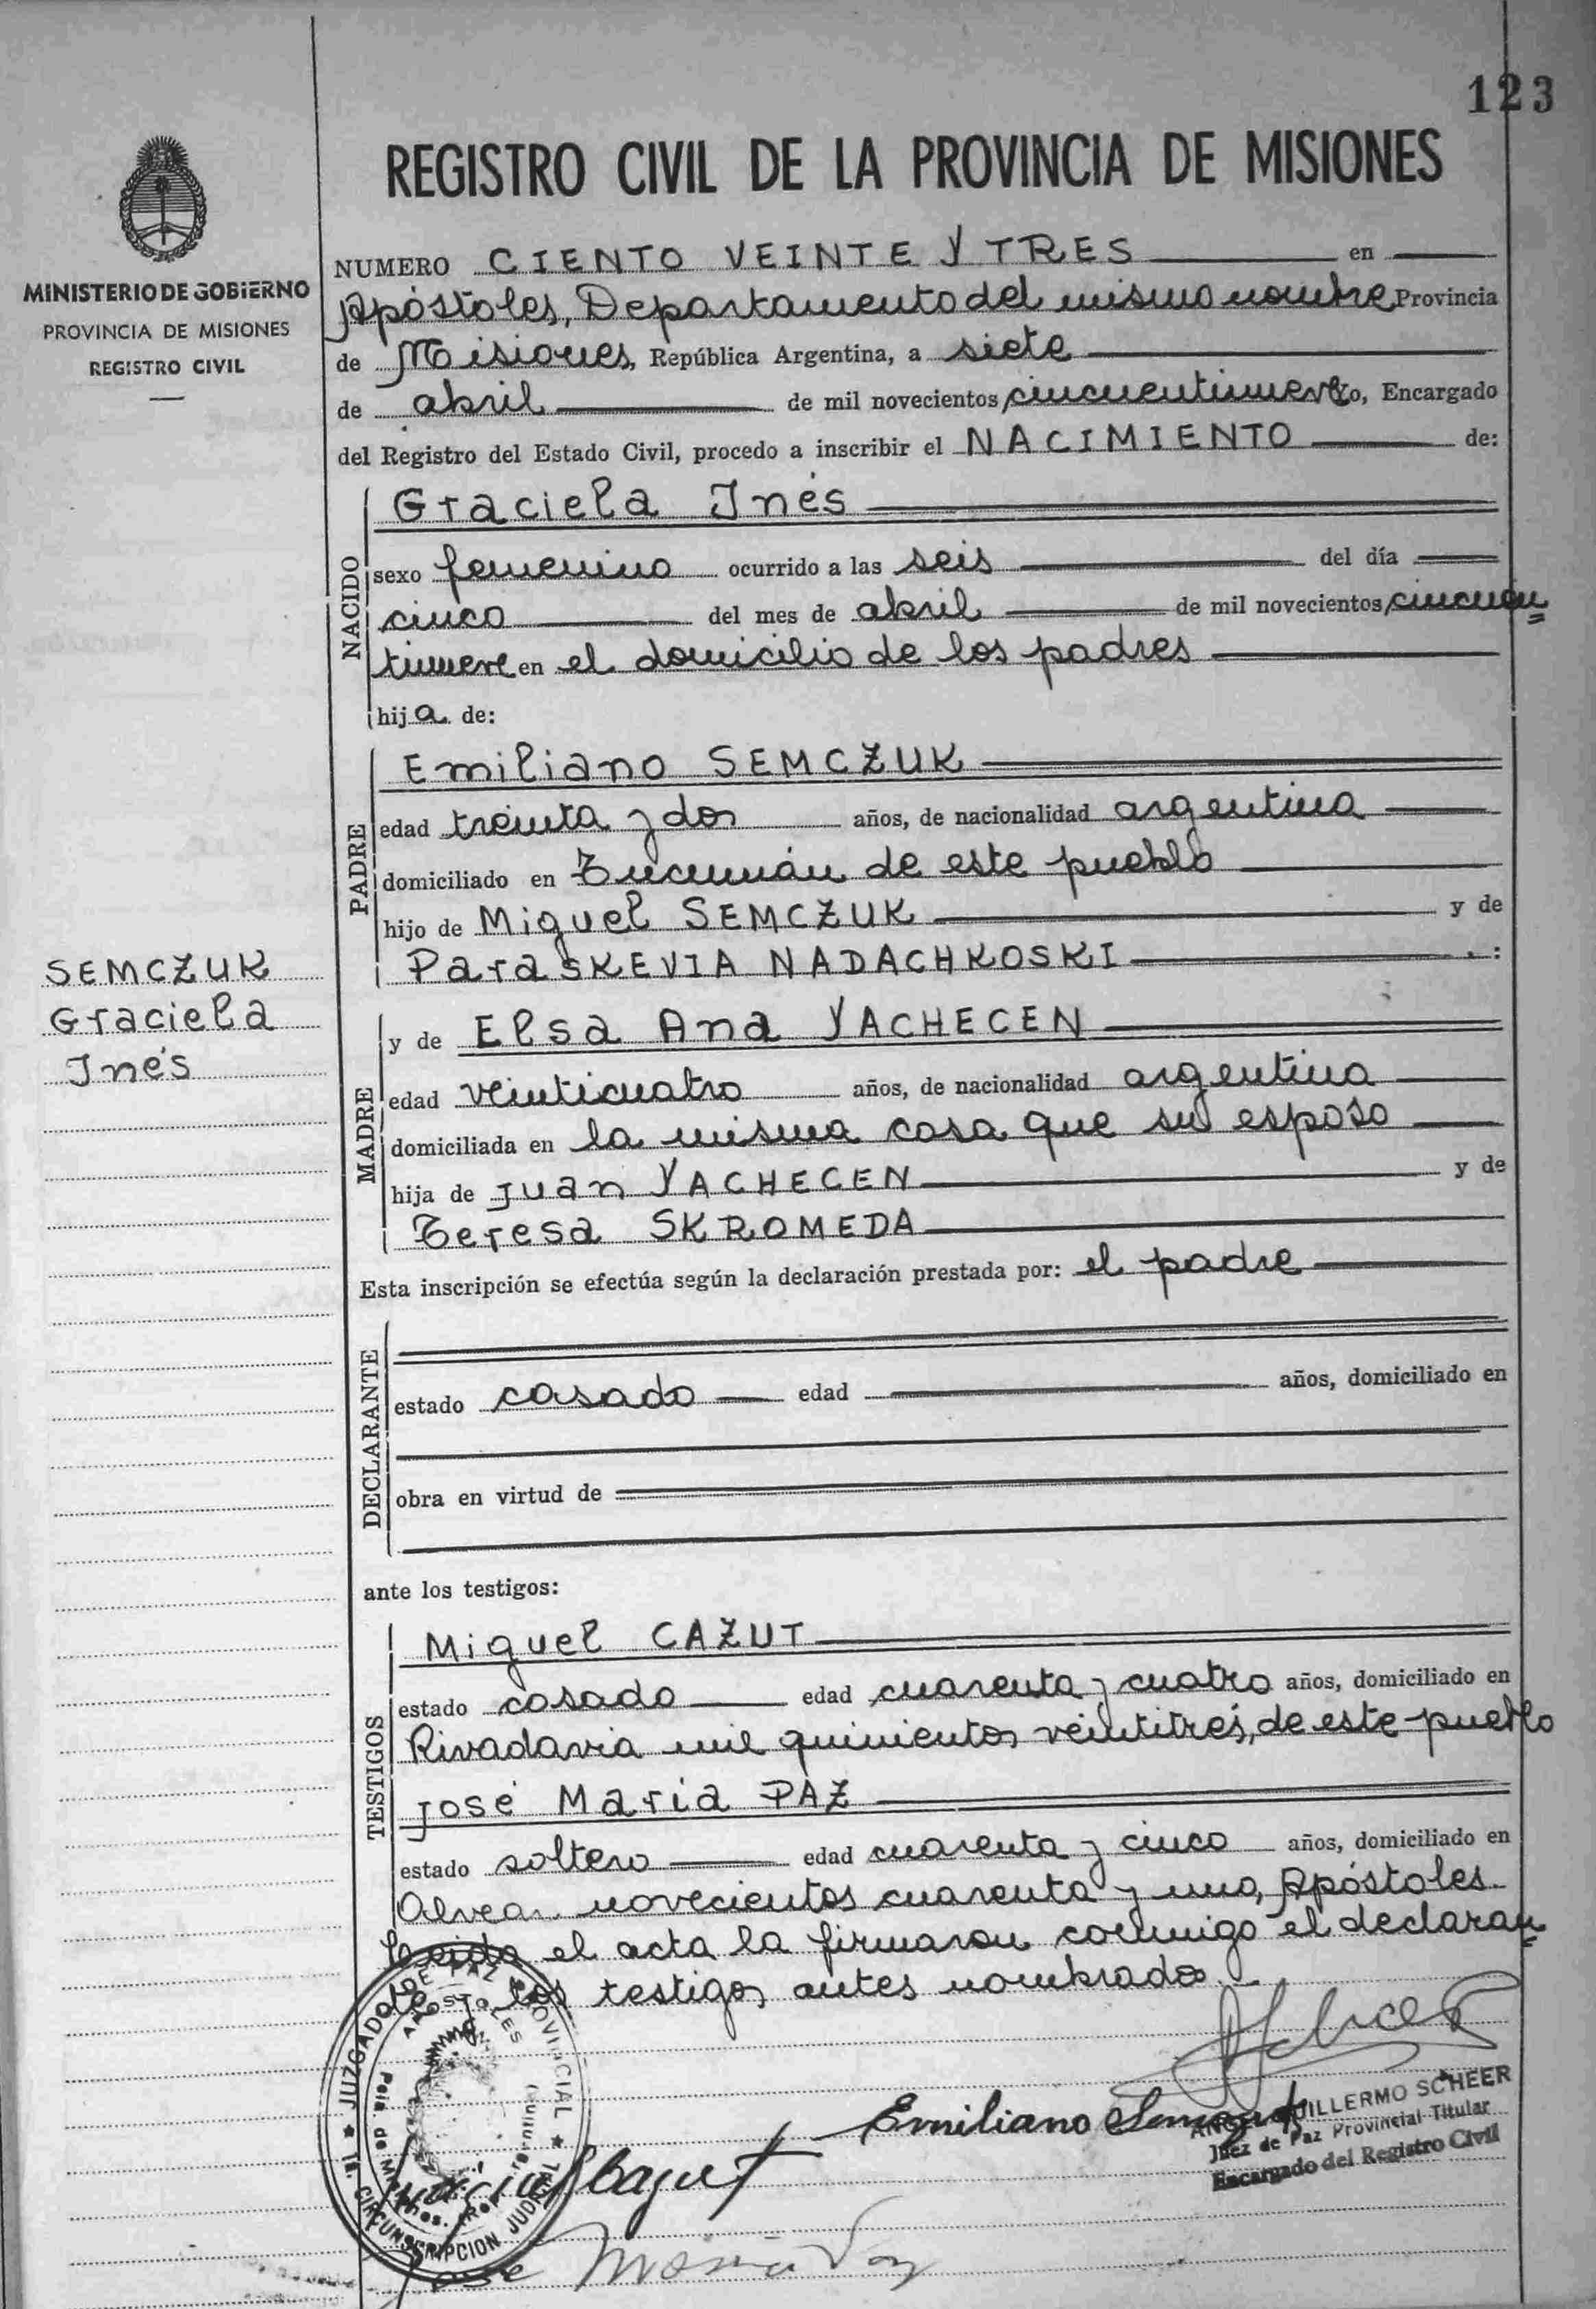 123
REGISTRO CIVIL DE LA PROVINCIA DE MISIONES
MINISTERIO DE GOBIERNO
PROVINCIA DE MISIONES
REGISTRO CIVIL
NUMERO CIENTO VEINTE Y TRES en
Apóstoles, Departamento del mismo nombre Provincia
de Misiones, República Argentina, a siete
de abril de mil novecientos cincuentinueve yo, Encargado
del Registro del Estado Civil, procedo a inscribir el NACIMIENTO de:
NACIDO
Graciela Inés
sexo femenino ocurrido a las seis del día
cinco del mes de abril de mil novecientos cincuen
tinueve en el domicilio de los padres
hija de:
PADRE
Emiliano SEMCZUK
edad treinta y dos años, de nacionalidad argentina
domiciliado en Tucumán de este pueblo
hijo de Miguel SEMCZUK y de
ParaSKEVIA NADACHKOSKI
SEMCZUK
Graciela
Inés
MADRE
y de Elsa Ana YACHECEN
edad veinticuatro años, de nacionalidad argentina
domiciliada en la misma casa que su esposo
hija de Juan YACHECEN y de
Teresa SKROMEDA
Esta inscripción se efectúa según la declaración prestada por: el padre
DECLARANTE
estado casado edad años, domiciliado en
obra en virtud de
ante los testigos:
TESTIGOS
Miguel CAZUT
estado casado edad cuarenta y cuatro años, domiciliado en
Rivadavia mil quinientos veintitrés, de este pueblo
José María PAZ
estado soltero edad cuarenta y cinco años, domiciliado en
Alvear novecientos cuarenta y uno, Apóstoles.
Leida el acta la firmaron conmigo el declaran
te y los testigos antes nombrados
JUZGADO DE PAZ PROVINCIAL
APOSTOLES
1ª. CIRCUNSCRIPCION JUDICIAL
Emiliano
GUILLERMO SCHEER
Juez de Paz Provincial Titular
Encargado del Registro Civil
Cazut
José María Paz